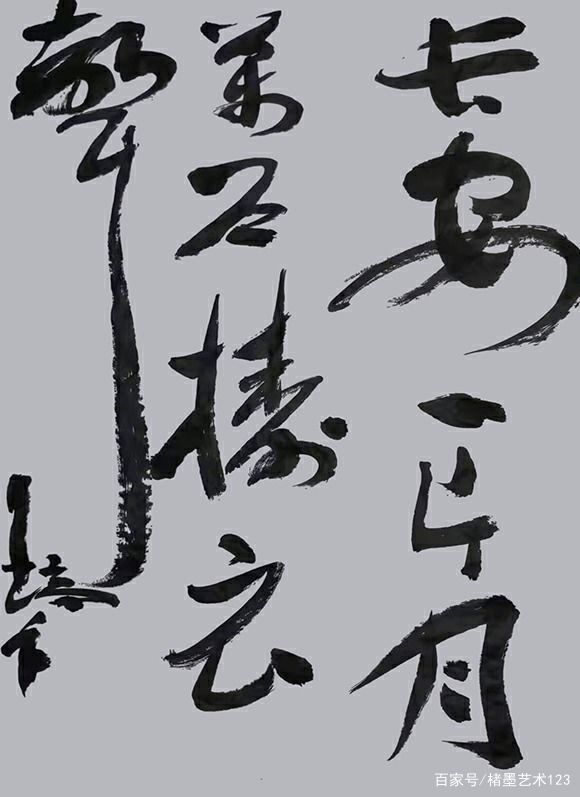 长安一片月
萬户擣衣
聲
百家号/楮墨艺术123